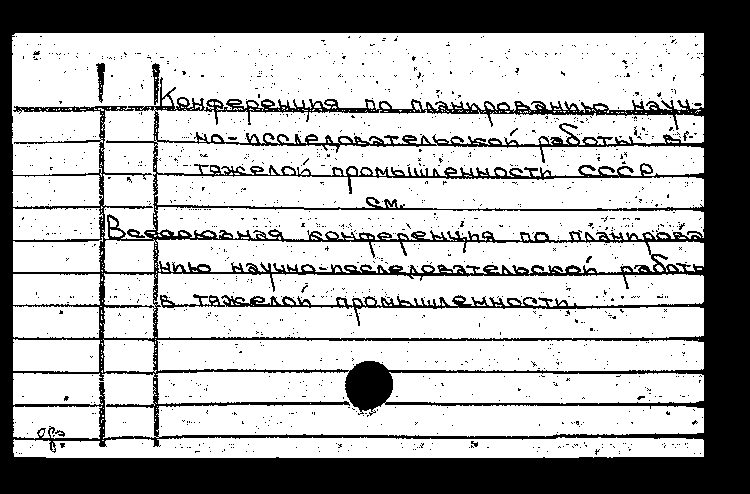 Конференция по планированию науч-
но-исследовательской работы в
тяжелой промышленности СССР
см.
Всесоюзная конференция по планирова
нию научно-исследовательской работы
в тяжелой промышленности.